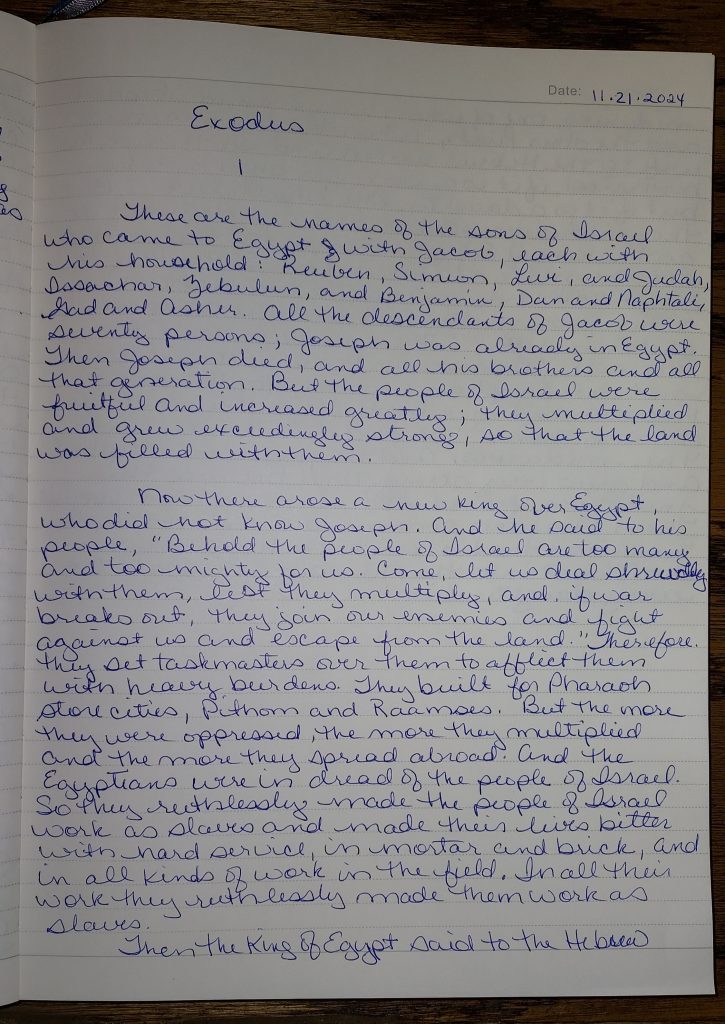 Date: 11.21.2024
Exodus
1
These are the names of the sons of Israel
who came to Egypt with Jacob, each with
his household: Reuben, Simeon, Levi, and Judah,
Issachar, Zebulun, and Benjamin, Dan and Naphtali,
Gad and Asher. All the descendants of Jacob were
seventy persons; Joseph was already in Egypt.
Then Joseph died, and all his brothers and all
that generation. But the people of Israel were
fruitful and increased greatly; they multiplied
and grew exceedingly strong, so that the land
was filled with them.
Now there arose a new king over Egypt,
who did not know Joseph. And he said to his
people, "Behold the people of Israel are too many
and too mighty for us. Come, let us deal shrewdly
with them, lest they multiply, and, if war
breaks out, they join our enemies and fight
against us and escape from the land." Therefore
they set taskmasters over them to afflict them
with heavy burdens. They built for Pharaoh
store cities, Pithom and Raamses. But the more
they were oppressed, the more they multiplied
and the more they spread abroad. And the
Egyptians were in dread of the people of Israel.
So they ruthlessly made the people of Israel
work as slaves and made their lives bitter
with hard service, in mortar and brick, and
in all kinds of work in the field. In all their
work they ruthlessly made them work as
slaves.
Then the King of Egypt said to the Hebrew